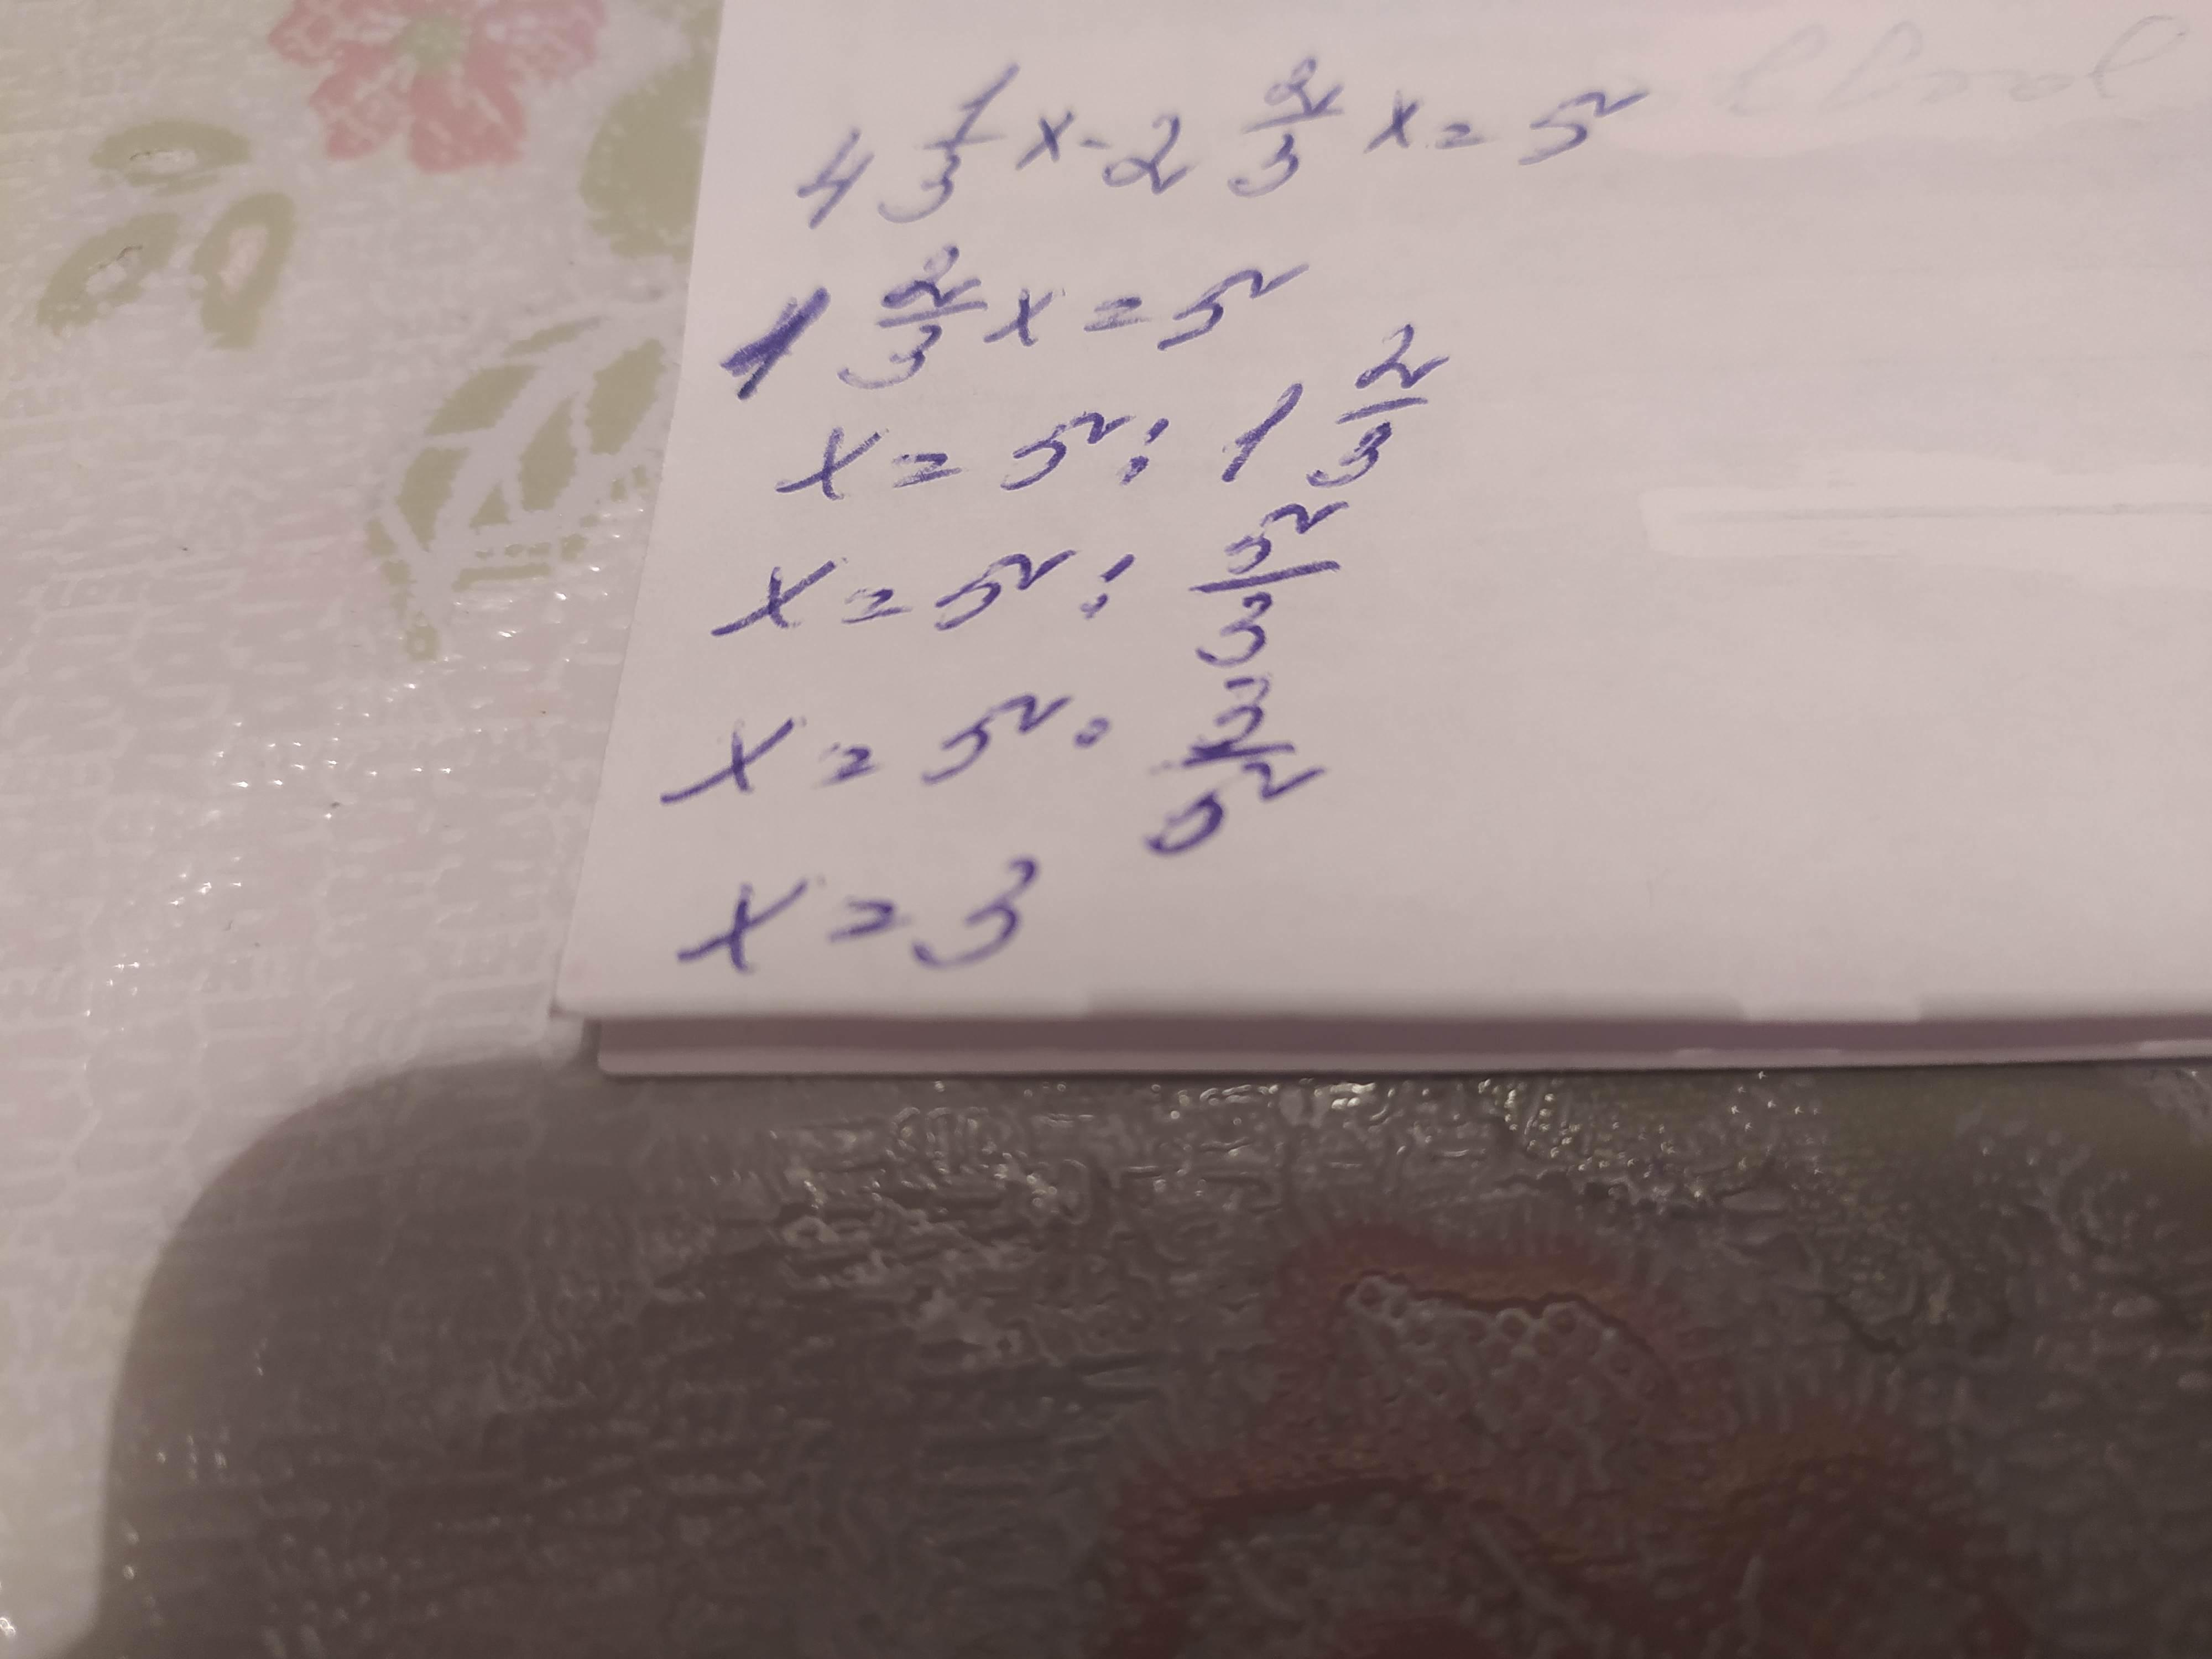 4 1/3 x - 2 2/3 x = 5
1 2/3 x = 5
x = 5 : 1 2/3
x = 5 : 5/3
x = 5 · 3/5
x = 3